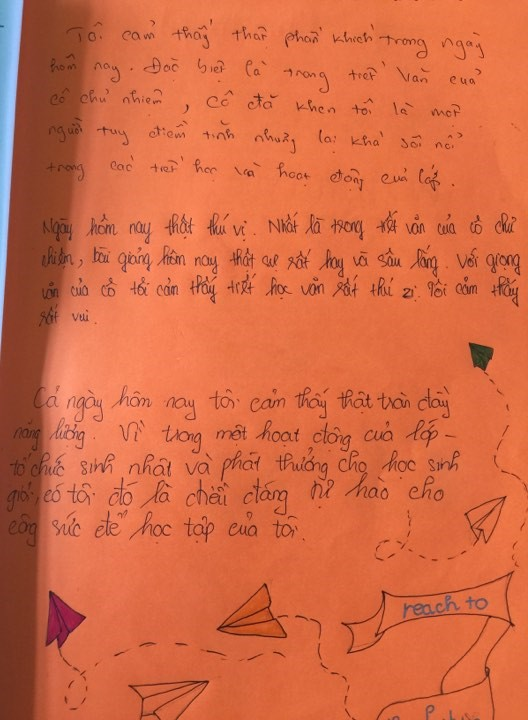 Tôi cảm thấy thật phấn khích trong ngày
hôm nay. Đặc biệt là trong tiết Văn của
cô chủ nhiệm, cô đã khen tôi là một
người tuy điềm tĩnh nhưng lại khá sôi nổi
trong các tiết học và hoạt động của lớp.
Ngày hôm nay thật thú vị. Nhất là trong tiết văn của cô chủ
nhiệm, bài giảng hôm nay thật sự rất hay và sâu lắng. Với giọng
văn của cô tôi cảm thấy tiết học văn rất thú zị. Tôi cảm thấy
rất vui.
Cả ngày hôm nay tôi cảm thấy thật tràn đầy
năng lượng. Vì trong một hoạt động của lớp -
tổ chức sinh nhật và phát thưởng cho học sinh
giỏi, có tôi đó là điều đáng tự hào cho
công sức để học tập của tôi.
reach to